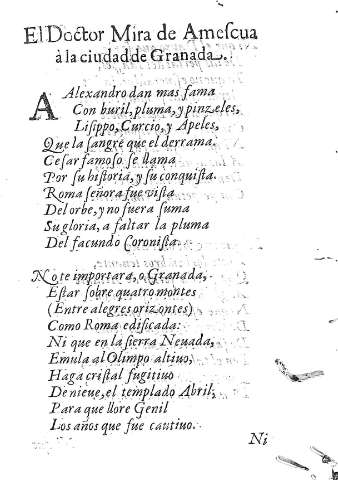 El Doctor Mira de Ameſcua
à la ciudad de Granada.
A Alexandro dan mas fama
Con buril, pluma, y pinzeles,
Liſippo, Curcio, y Apeles,
Que la ſangre que el derrama.
Ceſar famoſo ſe llama
Por ſu hiſtoria, y ſu conquiſta.
Roma ſeñora fue viſta
Del orbe, y no fuera ſuma
Su gloria, a faltar la pluma
Del facundo Coroniſta.
No te importara, o Granada,
Eſtar ſobre quatro montes
(Entre alegres orizontes)
Como Roma edificada:
Ni que en la ſierra Neuada,
Emula al Olimpo altiuo,
Haga criſtal fugitiuo
De nieue, el templado Abril,
Para que llore Genil
Los años que fue cautiuo.
Ni